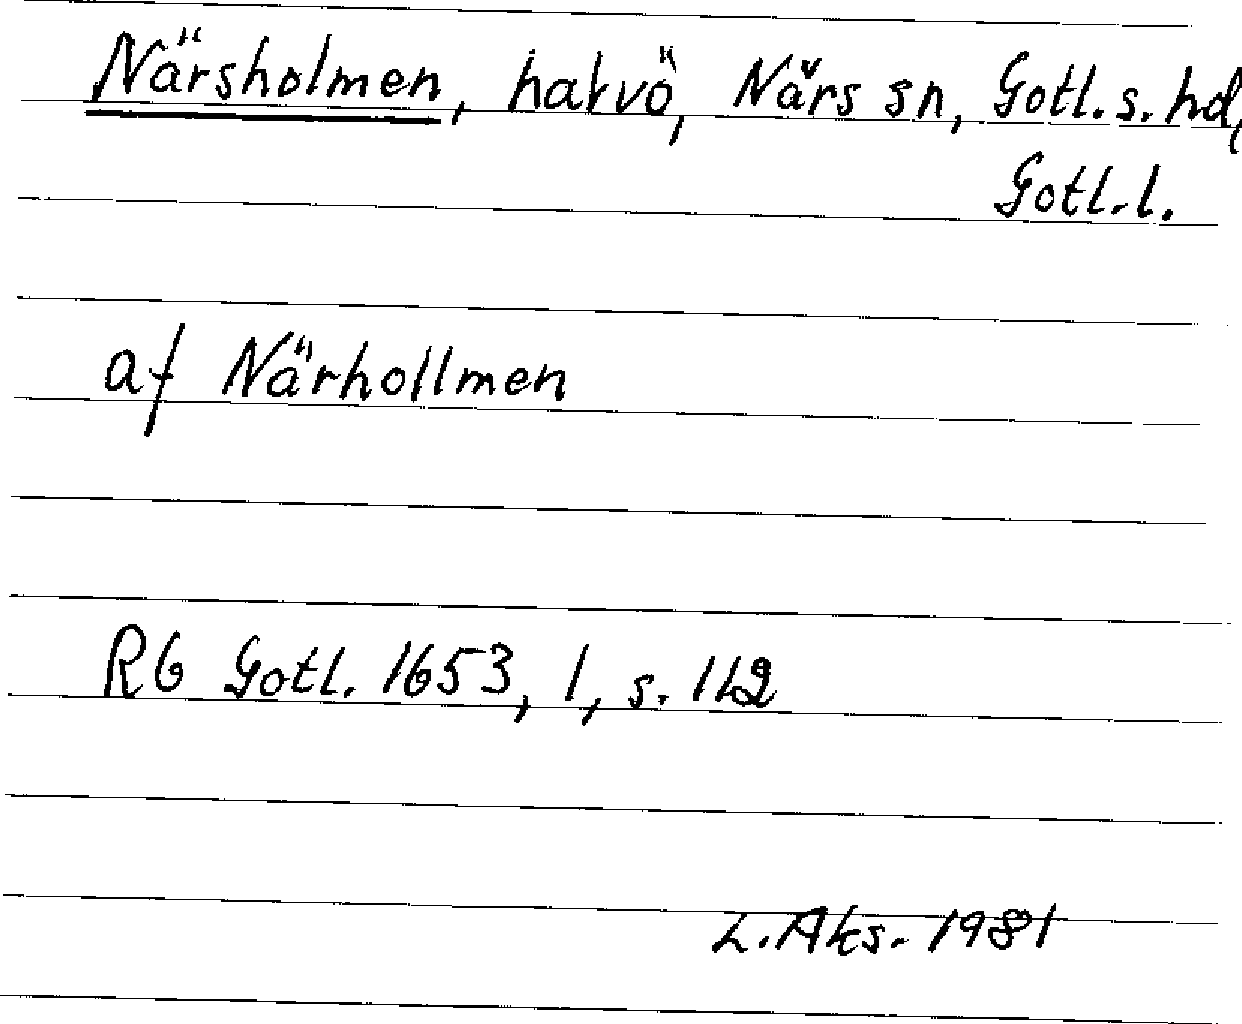 Närsholmen, halvö, Närs sn, Gotl. s. hd,
Gotl. l.
af Närhollmen
RG Gotl. 1653, 1, s. 112
L. Aks. 1981